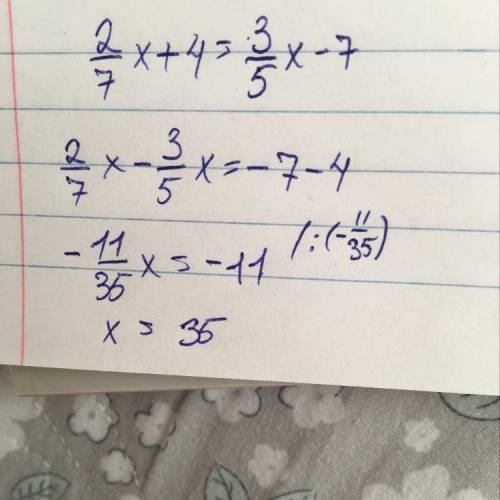 2/7 x + 4 = 3/5 x - 7
2/7 x - 3/5 x = -7 - 4
-11/35 x = -11 /:(-11/35)
x = 35